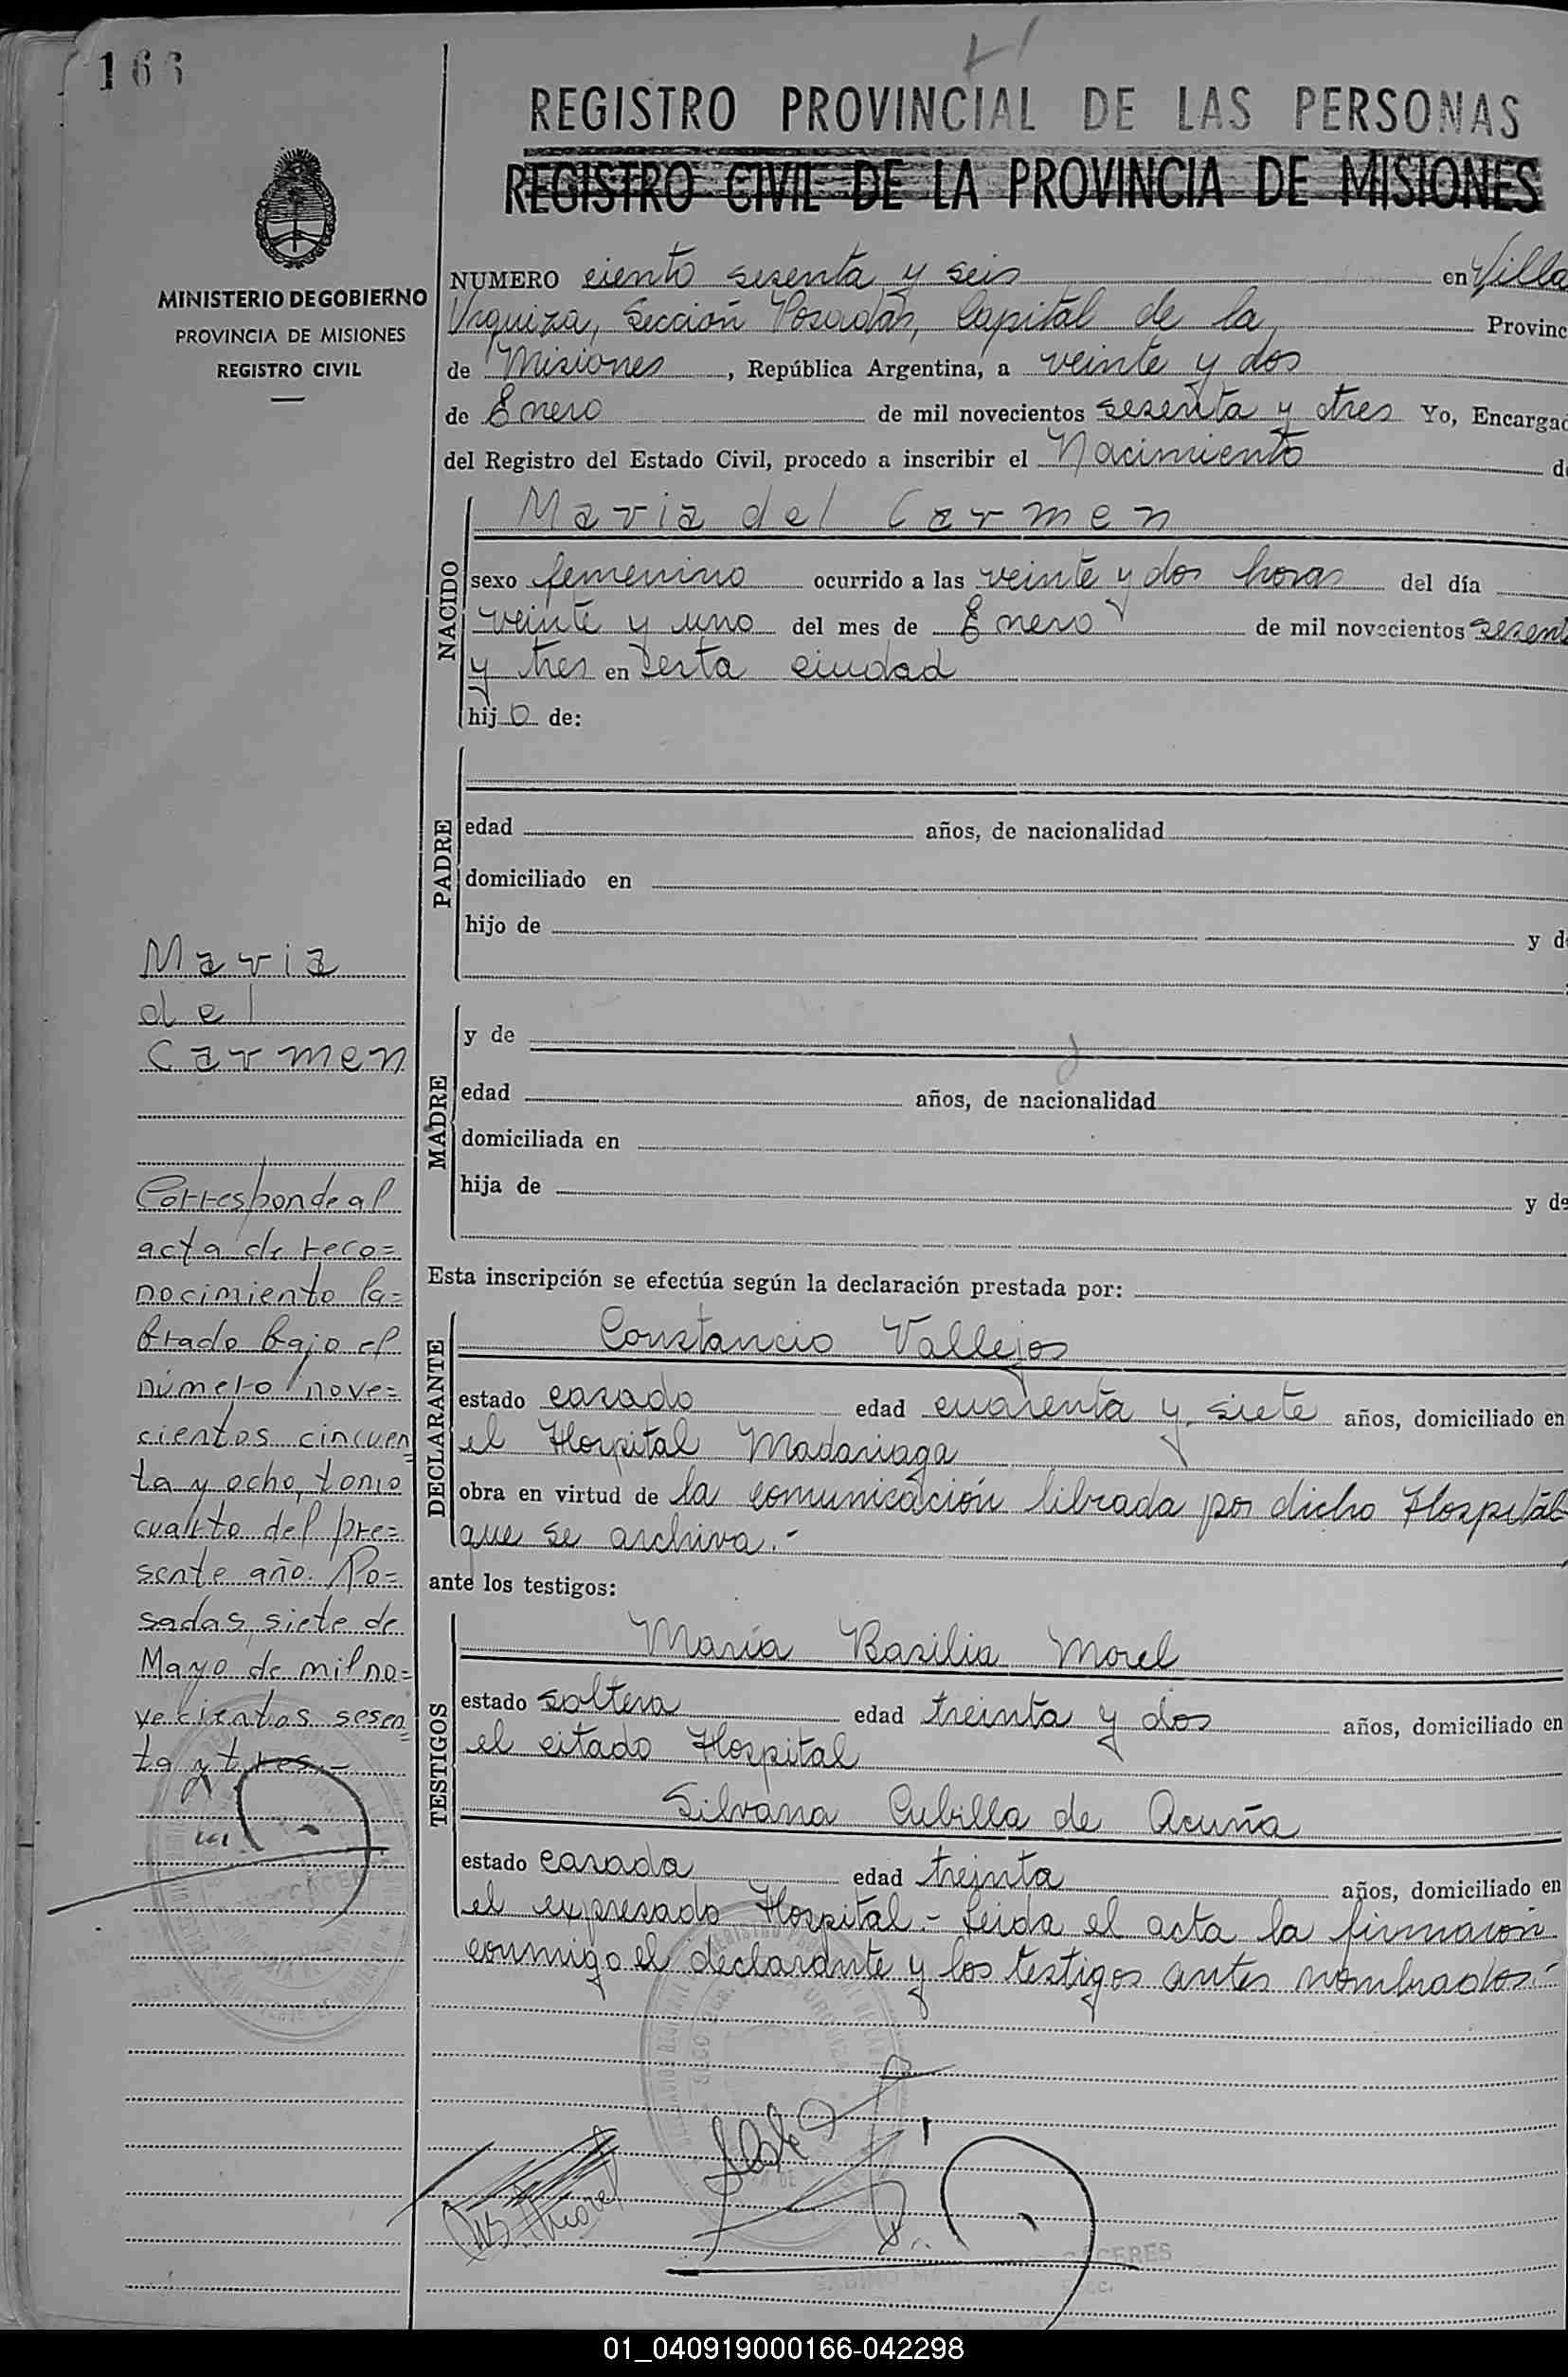 166
REGISTRO PROVINCIAL DE LAS PERSONAS
REGISTRO CIVIL DE LA PROVINCIA DE MISIONES
MINISTERIO DE GOBIERNO
PROVINCIA DE MISIONES
REGISTRO CIVIL
NUMERO ciento sesenta y seis en Villa
Urquiza, Sección Posadas, Capital de la Provinc
de Misiones, República Argentina, a veinte y dos
de Enero de mil novecientos sesenta y tres Yo, Encargad
del Registro del Estado Civil, procedo a inscribir el Nacimiento d
NACIDO
Maria del Carmen
sexo femenino ocurrido a las veinte y dos horas del día
veinte y uno del mes de Enero de mil novecientos sesent
y tres en esta ciudad
hija de:
PADRE
edad años, de nacionalidad
domiciliado en
hijo de y d
MADRE
y de
edad años, de nacionalidad
domiciliada en
hija de y de
Esta inscripción se efectúa según la declaración prestada por:
DECLARANTE
Constancio Vallejos
estado casado edad cuarenta y siete años, domiciliado en
el Hospital Madariaga
obra en virtud de la comunicación librada por dicho Hospital
que se archiva.-
ante los testigos:
TESTIGOS
María Basilia Morel
estado soltera edad treinta y dos años, domiciliado en
el citado Hospital
Silvana Cubilla de Acuña
estado casada edad treinta años, domiciliado en
el expresado Hospital.- Leida el acta la firmaron
conmigo el declarante y los testigos antes nombrados.-
Maria
del
Carmen
Corresponde al
acta de reco=
nocimiento la=
brado bajo el
número nove=
cientos cincuen=
ta y ocho, tomo
cuarto del pre=
sente año. Po=
sadas, siete de
Mayo de mil no=
vecientos sesen=
ta y tres.-
CACERES
01_040919000166-042298